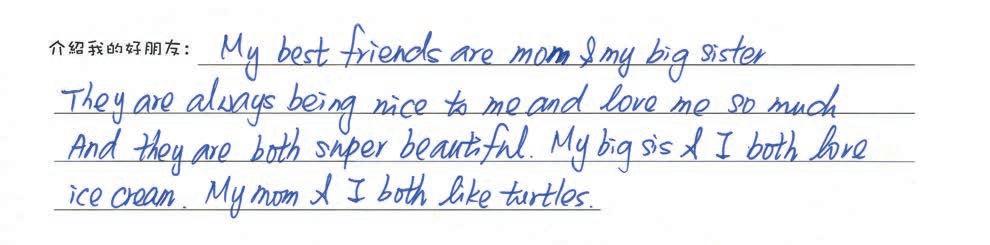 介紹我的好朋友: My best friends are mom & my big sister
They are always being nice to me and love me so much
And they are both super beautiful. My big sis & I both love
ice cream. My mom & I both like turtles.